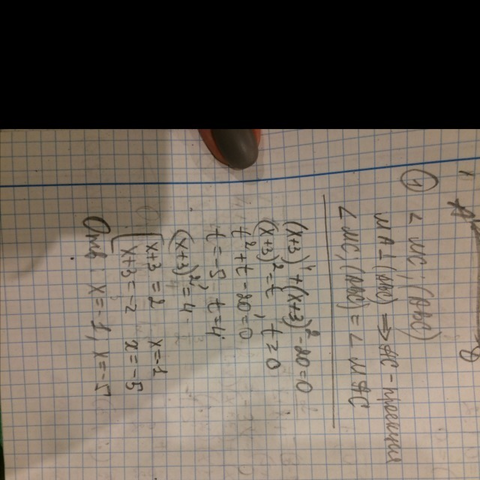 ④ ∠ MC; (ABC)
MA ⊥ (ABC) ⇒ AC - проекция
∠ MC, (ABC) = ∠ MAC
(x+3)⁴ + (x+3)² - 20 = 0
(x+3)² = t, t ≥ 0
t² + t - 20 = 0
t = -5 t = 4
(x+3)² = 4
[ x+3 = 2 x = -1
x+3 = -2 x = -5
Отв: x = -1, x = -5